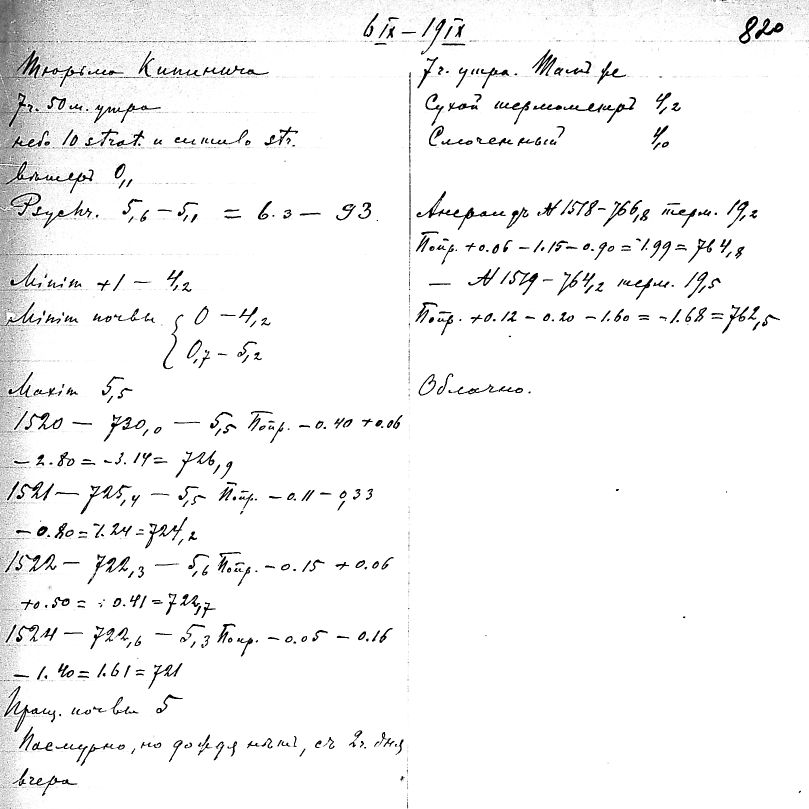 6 IX – 19 IX
820
Тюрьма Кипинича
7 ч. 50 м. утра
небо 10 strat. и cumulo str.
вѣтеръ 0,1
Psychr. 5,6 – 5,1 = 6.3 – 93
Minim +1 – 4,2
Minim почвы { 0 – 4,2
0,7 – 5,2
Maxim 5,5
1520 – 730,0 – 5,5 Попр. – 0.40 + 0.06
– 2.80 = – 3.14 = 726,9
1521 – 725,4 – 5,5 Попр. – 0.11 – 0,33
– 0.80 = 1.24 = 724,2
1522 – 722,3 – 5,6 Попр. – 0.15 + 0.06
+ 0.50 = + 0.41 = 722,7
1524 – 722,6 – 5,3 Попр. – 0.05 – 0.16
– 1.40 = 1.61 = 721
Пращ. почвы 5
Пасмурно, но дождя нѣтъ, съ 2 ч. дня
вчера
7 ч. утра. Тамъ же
Сухой термометръ 4,2
Смоченный 4,0
Анероидъ № 1518 – 766,8 терм. 19,2
Попр. + 0.06 – 1.15 – 0.90 = – 1.99 = 764,8
— № 1519 – 764,2 терм. 19,5
Попр. + 0.12 – 0.20 – 1.60 = – 1.68 = 762,5
Облачно.